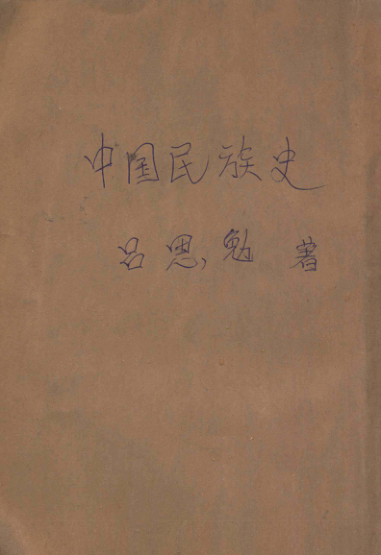 中国民族史
吕思勉 著